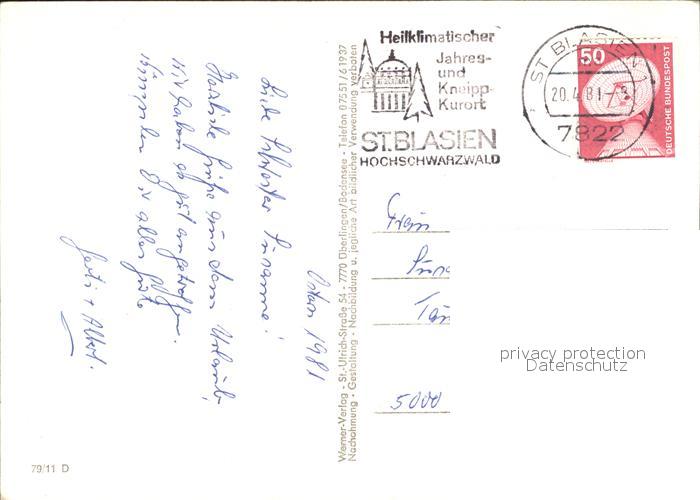 Ostern 1981
Liebe Schwester Susanne!
Herzliche Grüße aus dem Urlaub,
wir haben es gut angetroffen.
wünschen Dir alles Gute
Gerti + Albert.
Werner-Verlag - St.-Ulrich-Straße 54 - 7770 Überlingen/Bodensee - Telefon 07551/61937
Nachahmung - Gestaltung - Nachbildung u. jegliche Art bildlicher Verwendung verboten
Heilklimatischer
Jahres-
und
Kneipp-
Kurort
ST.BLASIEN
HOCHSCHWARZWALD
ST BLASIEN 1
20.4.81-8
7822
50
DEUTSCHE BUNDESPOST
Frau
Sus
5000
privacy protection
Datenschutz
79/11 D